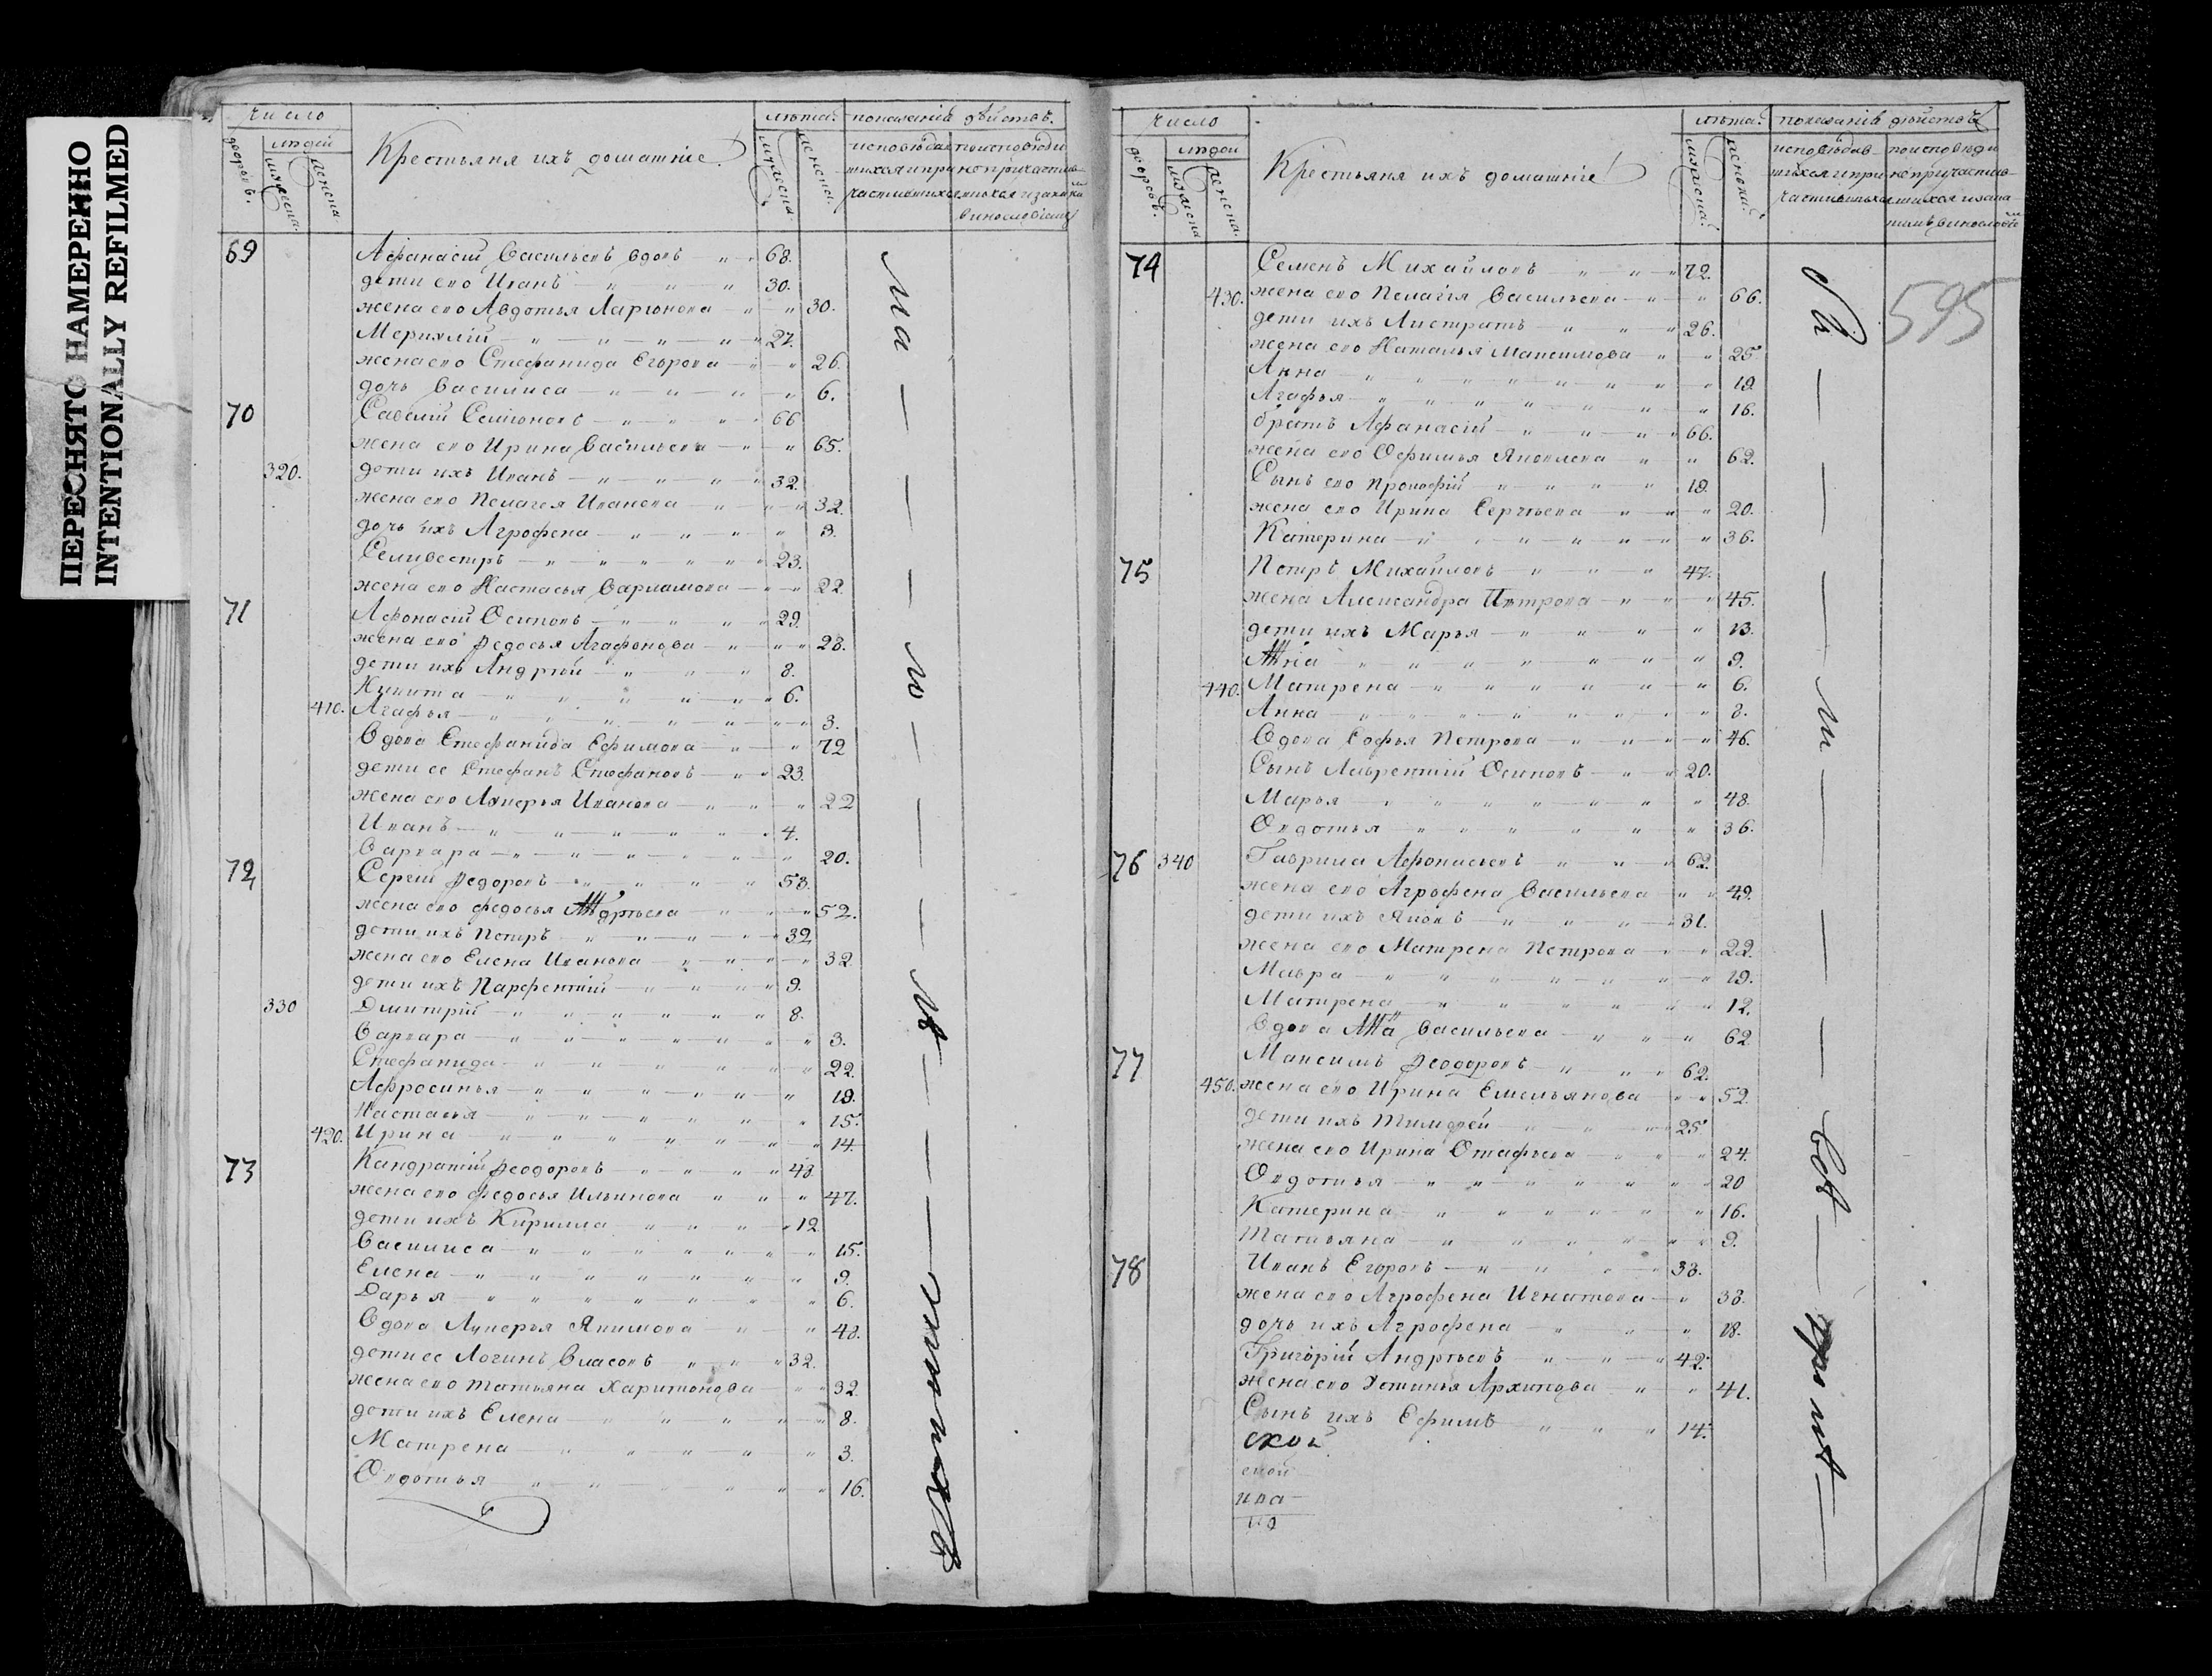 ПЕРЕСНЯТО НАМЕРЕННО
INTENTIONALLY REFILMED
Число
людей
дворовъ.
мужеска.
женска
Крестьяня ихъ домашніе
лѣта.
мужеска.
женска.
показаніѣ дѣйствъ.
69 Афанасій Васильевъ вдовъ 68.
дети ево Иванъ 30.
жена ево Авдотья Ларіонова 30.
Меркулій 27.
жена ево Стефанида Егорова 26.
дочь Василиса 6.
70 Савелій Семіоновъ 66
жена ево Ирина Васильева 65.
320. дети ихъ Иванъ 32.
жена ево Пелагея Иванова 32.
дочь ихъ Агрофена 3.
Селивестръ 23.
жена ево Настасья Варламова 22.
71 Афонасій Осиповъ 29.
жена ево Федосья Агафонова 28.
дети ихъ Андрѣй 8.
Никита 6.
410. Агафья 3.
Вдова Стефанида Ефимова 72
дети ее Стефанъ Стефановъ 23.
жена ево Лукерья Иванова 22
Иванъ 4.
Варвара 20.
72 Сергій Федоровъ 53.
жена ево Федосья 52.
дети ихъ Петръ 32
жена ево Елена Иванова 32
дети ихъ Парфентій 9.
330 Дмитрій 8.
Варвара 3.
Стефанида 22.
Афросинья 19.
Настасья 15.
420. Ирина 14.
73 Кандратій Феодоровъ 48.
жена ево Федосья Ильинова 47.
дети ихъ Кирилла 12.
Василиса 15.
Елена 9.
Дарья 6.
Вдова Лукерья Якимова 48.
дети ее Логинъ Власовъ 32.
жена ево Татьяна Харитонова 32.
дети ихъ Елена 8.
Матрена 3.
Овдотья 16.
Число
людей
дворовъ.
мужеска
женска.
Крестьяня ихъ домашніе
лѣта.
мужеска.
женска.
показаніѣ дѣйствъ
595
74 Семенъ Михайловъ 72.
430. жена ево Пелагія Васильева 66.
дети ихъ Листратъ 26.
жена ево Наталья Максимова 25
Анна 19.
Агафья 16.
братъ Афанасій 66.
жена ево Офимья Яковлева 62.
Сынъ ево Прокофій 19.
жена ево Ирина Сергѣева 20.
Катерина 36.
75 Петръ Михайловъ 47.
жена Александра Петрова 45.
дети ихъ Марья 13.
9.
440. Матрена 6.
Анна 3.
Вдова Софья Петрова 46.
Сынъ Лаврентій Осиповъ 20.
Марья 48.
Овдотья 36.
76 340 Гаврила Афонасьевъ 62.
жена ево Агрофена Васильева 49.
дети ихъ Яковъ 31.
жена ево Матрена Петрова 22.
Мавра 19.
Матрена 12.
Вдова Васильева 62
77 Максимъ Феодоровъ 62.
450. жена ево Ирина Емельянова 52.
дети ихъ Тимофей 25
жена ево Ирина Отафьева 24.
Овдотья 20
Катерина 16.
Татьяна 9.
78 Иванъ Егоровъ 38.
жена ево Агрофена Игнатова 38.
дочь ихъ Агрофена 18.
Григорій Андрѣевъ 42.
жена ево Устинья Архипова 41.
Сынъ ихъ Ефимъ 14.